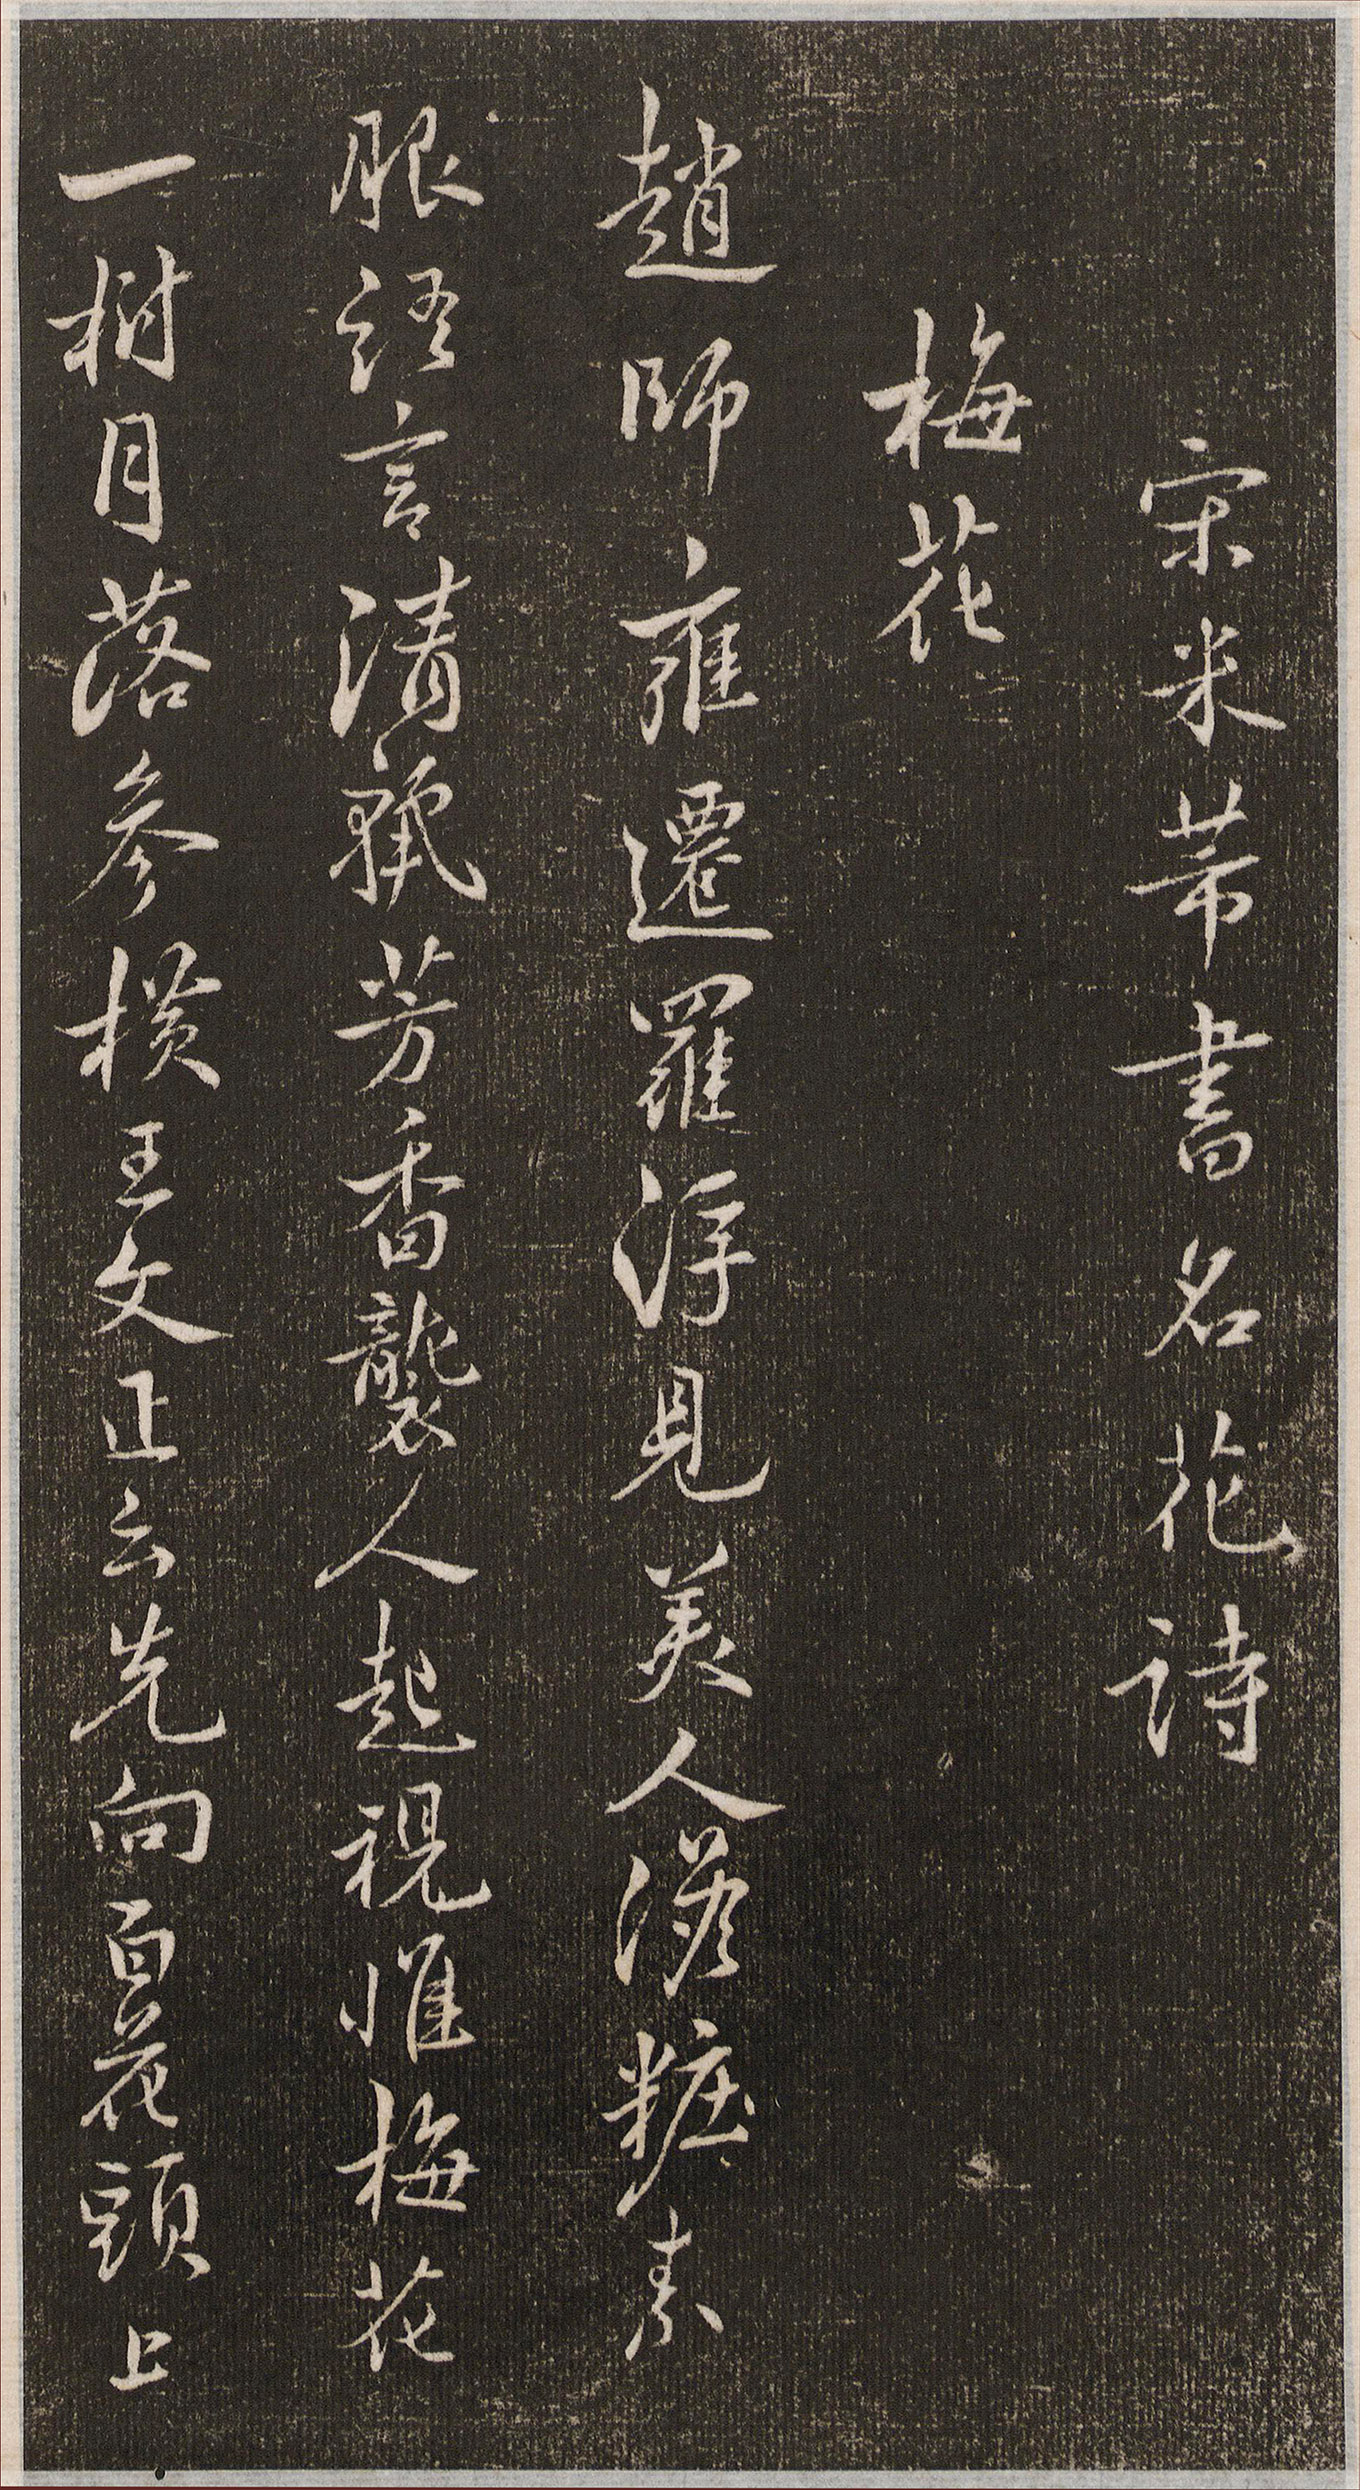 宋米芾書名花詩
梅花
趙師雍遷羅浮見美人澹粧素
服語言清麗芳香襲人起視惟梅花
一樹月落參橫王文正云先向百花頭上